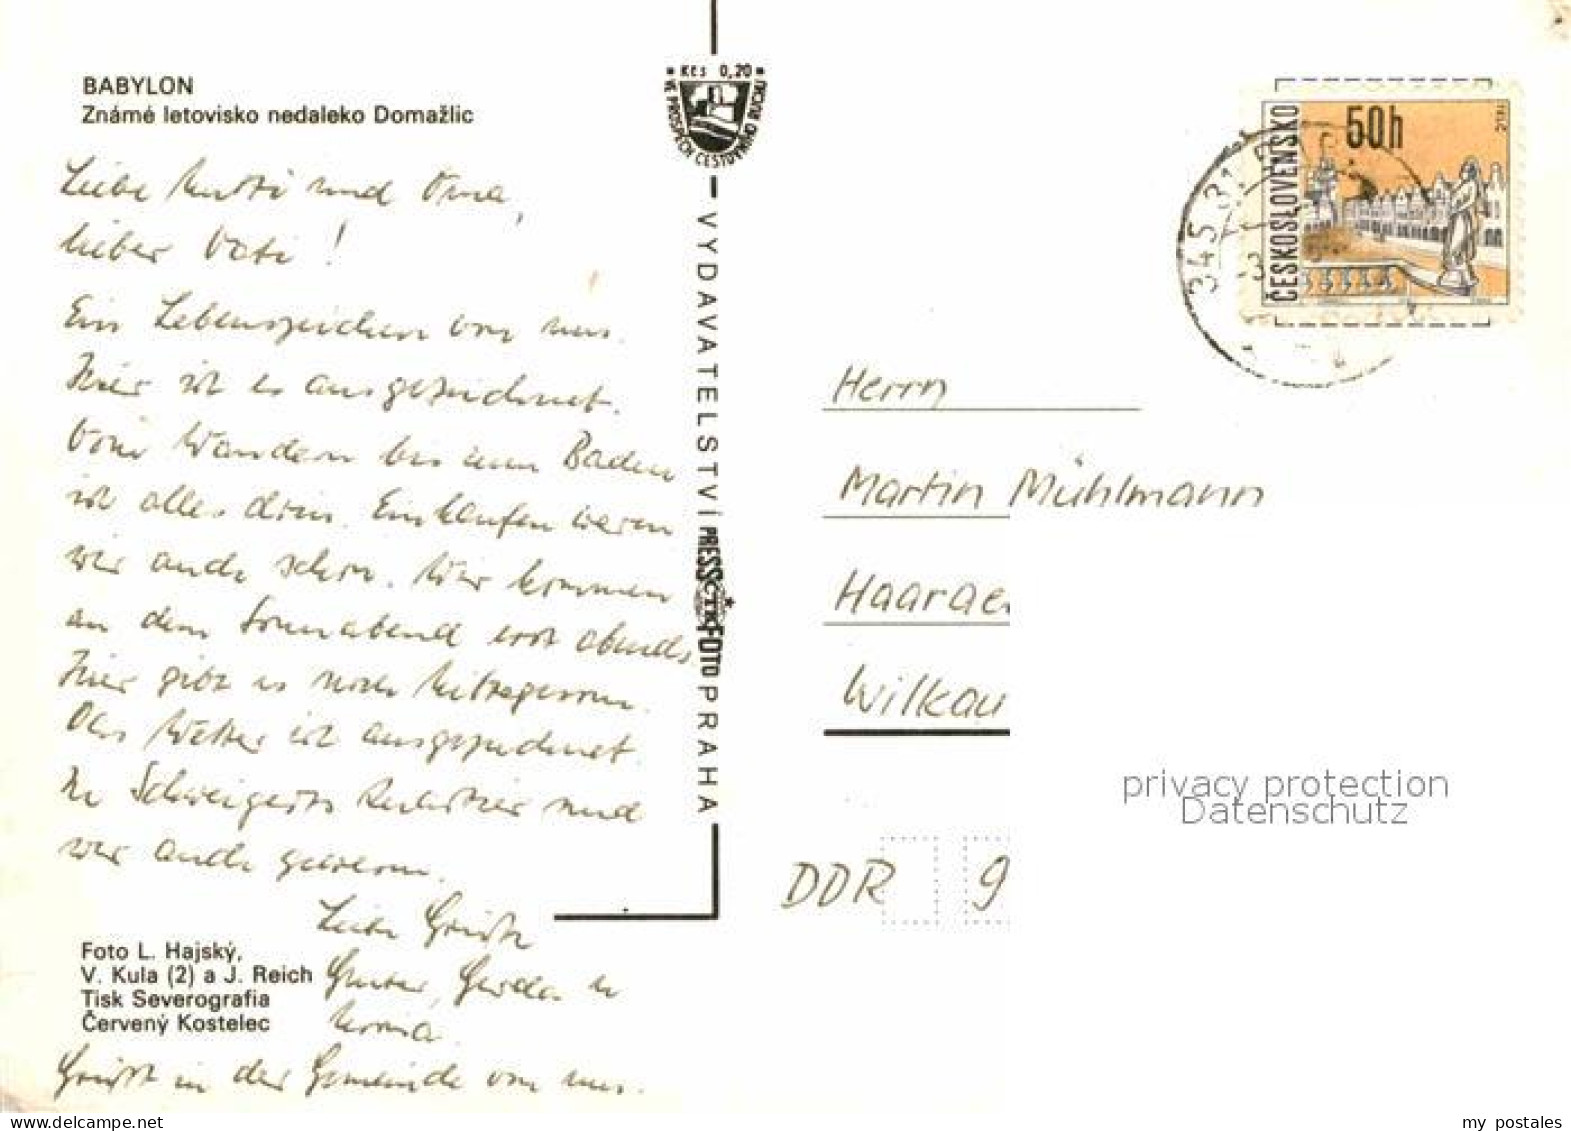 BABYLON
Známé letovisko nedaleko Domažlic
Liebe Mutti und Oma,
lieber Vati!
Ein Lebenszeichen von uns.
Hier ist es ausgezeichnet.
Vom Wandern bis zum Baden
ist alles drin. Einkaufen waren
wir auch schon. Wir kommen
an dem Sonnabend erst abends
Hier gibt es noch
Das Wetter ist ausgezeichnet.
In Schweigerts Quartier sind
wir auch gewesen.
Liebe Grüße
Gunter, Gerda u
Grüßt in der Gemeinde von uns.
Foto L. Hajský,
V. Kula (2) a J. Reich
Tisk Severografia
Červený Kostelec
Kčs 0,20
VE PROSPĚCH CESTOVNÍHO RUCHU
VYDAVATELSTVÍ PRESSFOTO PRAHA
ČTK
ČESKOSLOVENSKO
50h
TELČ
345 31
Herrn
Martin Mühlmann
Haarae
Wilkau
DDR 9
privacy protection
Datenschutz
my postales